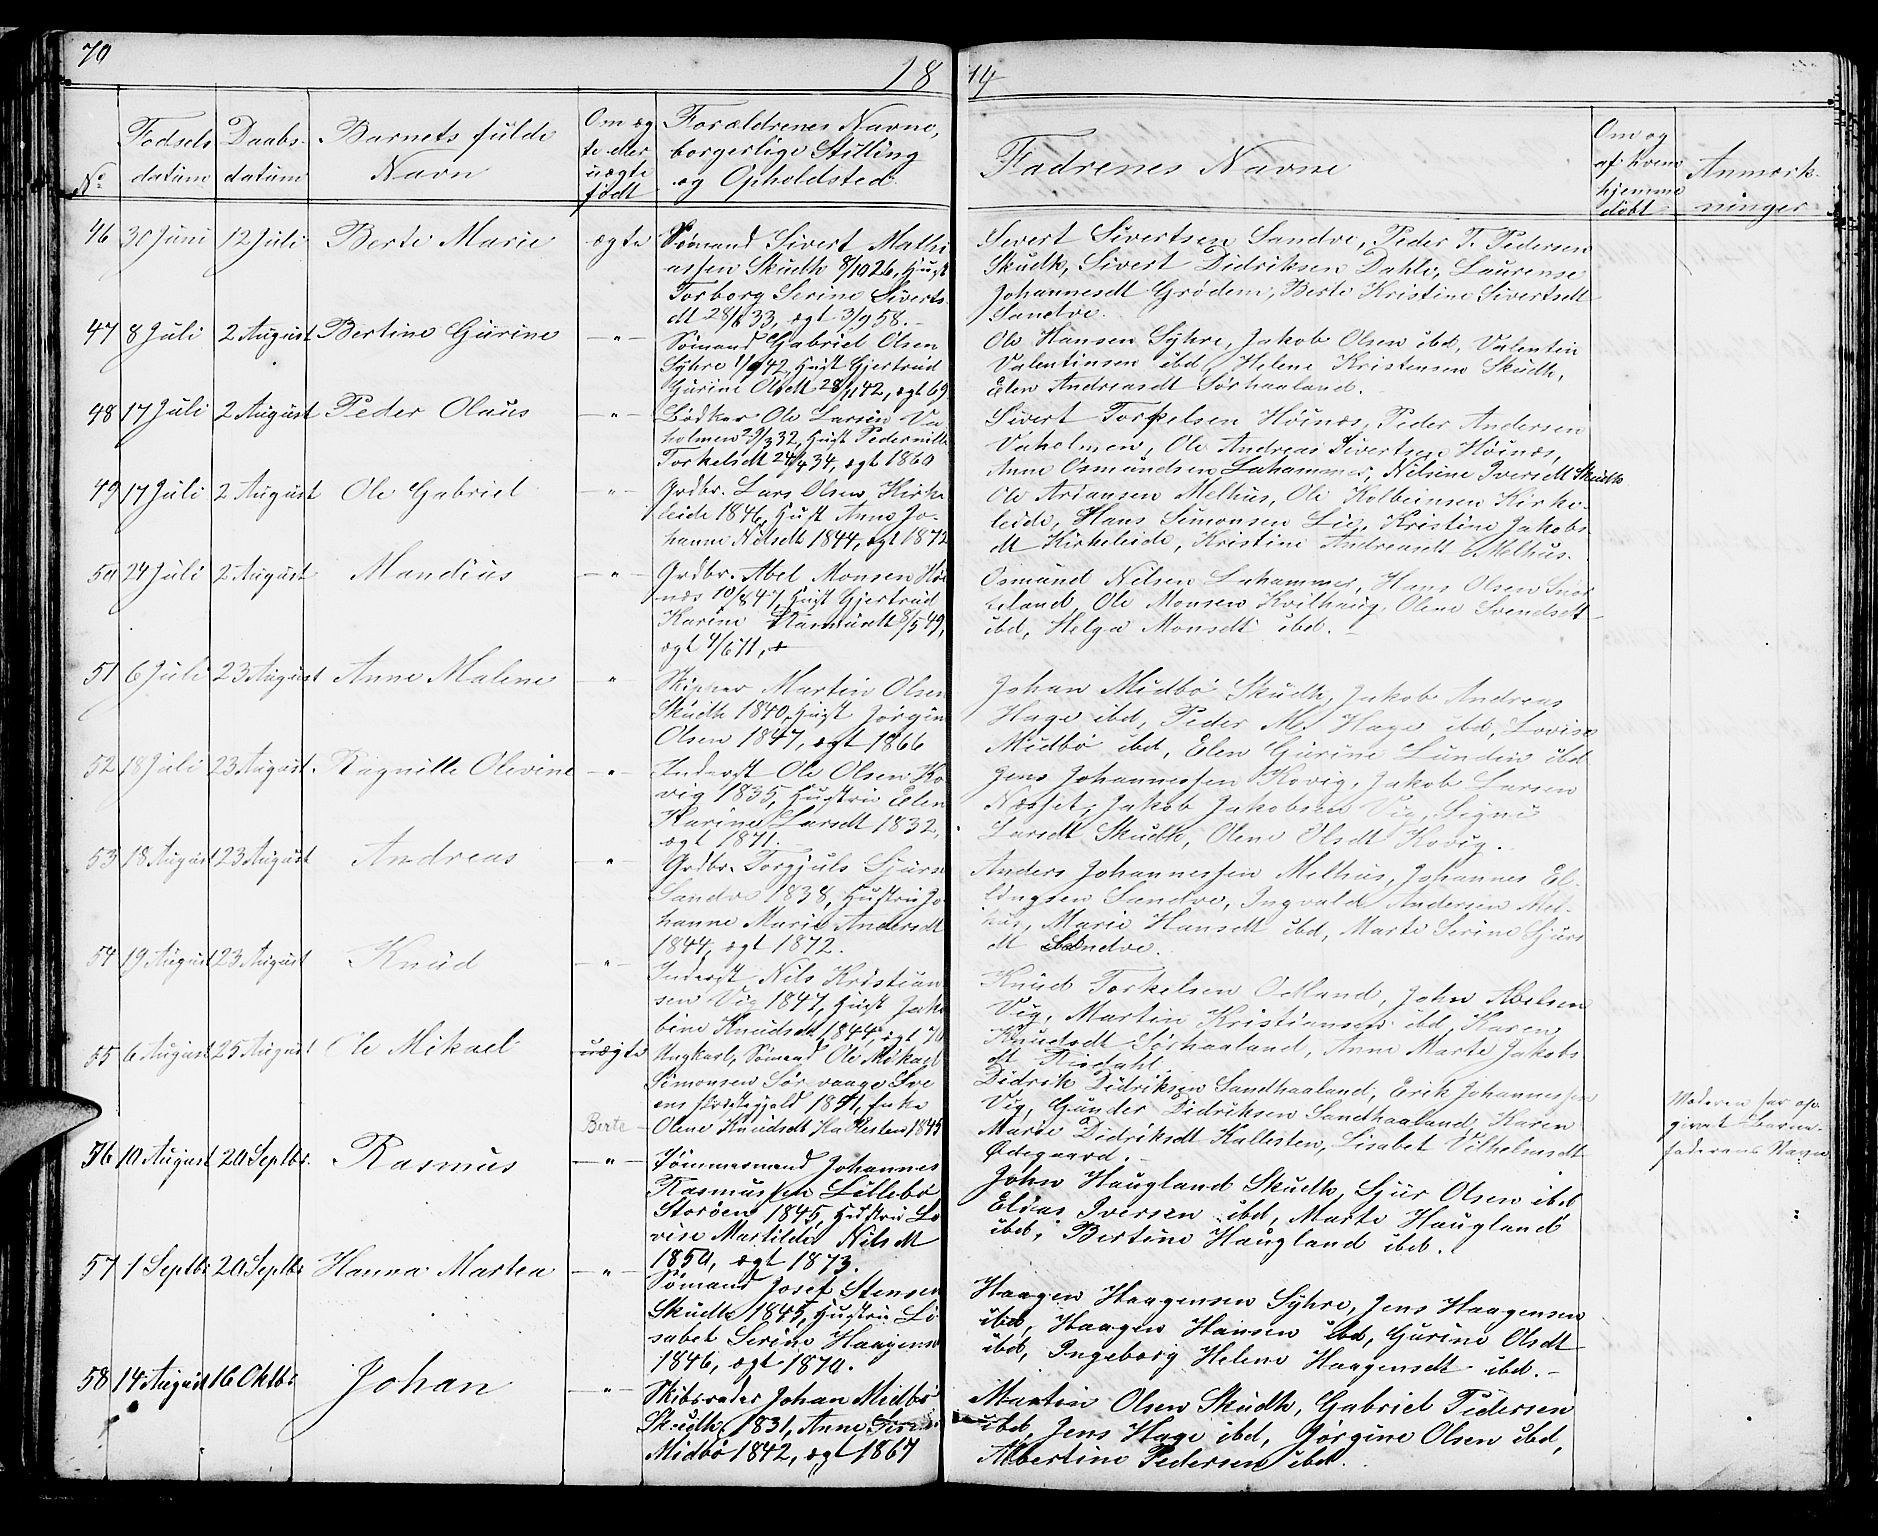 70
18 74
No
Fødsels datum
Daabs- datum
Barnets fulde Navn
Om æg te eller uægte født
Forældrenes Navne, borgerlige Stilling og Opholdsted.
Fadrenes Navne
Om og af hvem hjemme døbt
Anmærk- ninger
46 30 Juni 12 Juli Berte Marie ægte Sømand Sivert Mathi
assen Skudh 8/10 26, Hust
Torborg Serine Siverts
dt 28/6 33, ægt 3/9 58.
Sivert Sivertsen Sandve, Peder T. Pedersen
Skudh, Sivert Didriksen Dahle, Laurense
Johannesdt Grødem, Berte Kristine Sivertsdt
Sandve.
47 8 Juli 2 August Bertine Gurine -"- Sømand Gabriel Olsen
Syhre 42, Hust Gjertrud
Gurine Olsdt 42, ægt 69
Ole Hansen Syhre, Jakob Olsen ibd, Valentin
Valentinsen ibd, Helene Kristensen Skudh,
Elen Andreasdt Sørhaaland.
48 17 Juli 2 August Peder Olaus -"- Bødker Ole Larsen Va
holmen 29/3 32, Hust Pedernille
Torkelsdt 24/4 34, ægt 1860
Sivert Torkelsen Høinæs, Peder Andersen
Vaholmen, Ole Andreas Sivertsen Høinæs,
Anne Osmundsen Lahammer, Nilsine Iversdt Skudh
49 17 Juli 2 August Ole Gabriel -"- Grdbr. Lars Olsen Kirke
leide 1846, Hust Anne Jo-
hanne Nilsdt 1844, ægt 1872
Ole Ariansen Melhus, Ole Kolbeinsen Kirke-
leide, Hans Simonsen Lie, Kristine Jakobs
dt Kirkeleide, Kristine Andreasdt Melhus.
50 24 Juli 2 August Mandius -"- Grdbr. Abel Monsen Høi
næs 10/8 47, Hust Gjertrud
Karine 8/5 49,
ægt 4/6 71,
Osmund Nilsen Lahammer, Hans Olsen Snør
teland, Ole Monsen Kvilhaug, Olene Svendsdt
ibd, Helga Monsdt ibd.
51 6 Juli 23 August Anne Malene " Skipper Martin Olsen
Skudh 1840, Hust Jørgin
Olsen 1847, ægt 1866
Johan Midbø Skudh, Jakob Andreas
Hage ibd, Peder M. Hage ibd, Lovise
Midbø ibd, Elen Gurine Lunden ibd
52 18 Juli 23 August. Ragnille Olevine -"- Inderst Ole Olsen Ko
vig 1835, Hustru Elen
Karine Larsdt 1832,
ægt 1871.
Jens Johannessen Kovig, Jakob Larsen
Næsset, Jakob Jakobsen Vig, Signe
Larsdt Skudh, Olene Olsdt Kovig.
53 18 August 23 August Andreas -"- Grdbr. Torgjuls Sjurs
Sandve 1838, Hustru Jo
hanne Marie Andersdt
1844, ægt 1872.
Anders Johannessen Melhus, Johannes El-
lingsen Sandve, Ingvald Andersen Mel-
hus, Marie Hansdt ibd, Marte Serine Sjurs
dt Sandve.
54 19 August 23 August Knud -"- Inderst Nils Kristian
sen Vig 1847, Hust Jako
bine Knudsdt 1844, ægt 70
Knud Torkelsen Ødland, John Abelsen
Vig, Martin Kristiansen ibd, Karen
Knudsdt Sørhaaland, Anne Marte Jakobs
dt
55 6 August 25 August Ole Mikael uægte Ungkarl, Sømand Ole Mikael
Simonsen Sørvaage Sve
1851, Enke
Berte Olene Knudsdt 1845
Didrik Didriksen Sandhaaland, Erik Johannessen
Vig, Gunder Didriksen Sandhaaland, Karen
Marie Didriksdt Kallesten, Lisabet Vilhelmsdt
Ødegaard.
Moderen har op
givet Barne-
faderens Navn
56 10 August 20 Septbr. Rasmus -"- Tømmermand Johannes
Rasmussen Lillebø
Storøen 1845, Hustru Lo
vise Martilde Nilsdt
1850, ægt 1873.
John Haugland Skudh, Sjur Olsen ibd
Elias Iversen ibd, Marte Haugland
ibd, Bertine Haugland ibd.
57 1 Septbr 20 Septbr Hanna Martea -"- Sømand Josef Stensen
Skudh 1845, Hustru Li
sabet Serine Haagens
1846, ægt 1870.
Haagen Haagensen Syhre, Jens Haagensen
ibd, Haagen Hansen ibd, Gurine Olsdt
ibd, Ingeborg Helene Haagensdt ibd.
58 14 August 16 Oktbr Johan -"- Skibsreder Johan Midbø
Skudh 1831, Anne
Midbø 1842, ægt 1867
Martin Olsen Skudh, Gabriel Pedersen
ibd, Jens Hage ibd, Jørgine Olsen ibd,
Albertine Pedersen ibd.